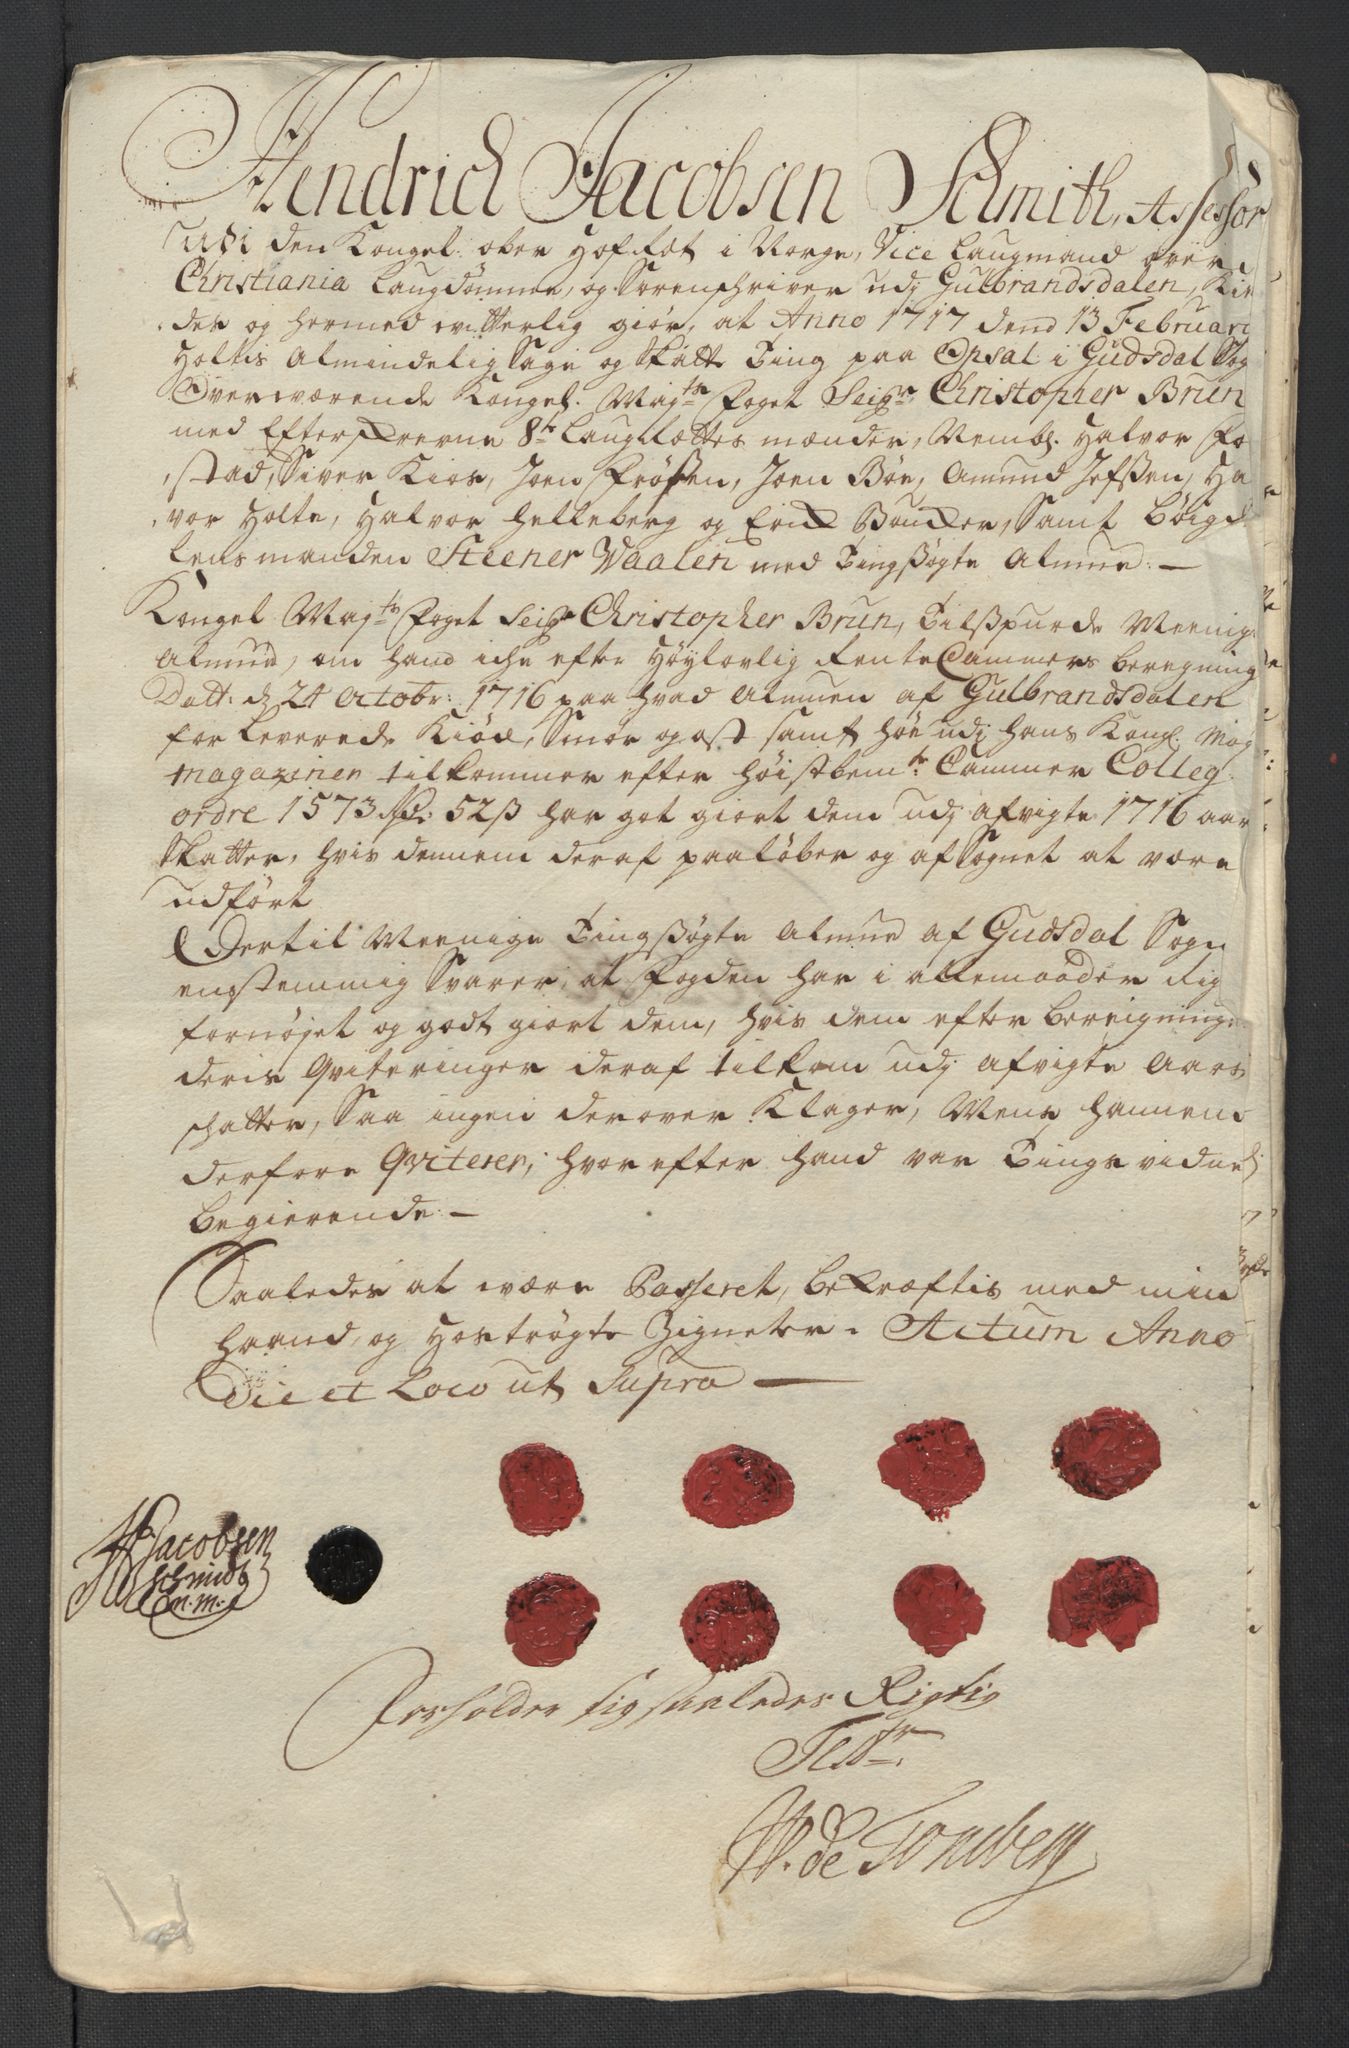 Hendrich Jacobsen Schmith, Assessor
udi den Kongel: ober Hof Ræt i Norge, Vice Laugmand over
Christiania Laugdømme, og Sorenschriver udj Gulbrandsdalen, Kien
des og hermed vitterlig giør, at Anno 1717 dend 13 Februari
Holtis Almindelig Sage og Skatte Ting paa Opsal i Gudsdal Sog
Overværende Kongel. Maj:ts Foget Seig:r Christopher Brun
med Efterskrevne 8te Laugrættes mænder, Nembl. Halvor Fo
stad, Siver Kios, Joen Frøssen, Joen Bøe, Amund Jefsen, Ha
vor Holte, Halvor Helleberg og Erik Boucker, Samt Bøigd
lensmanden Steener Vaalen med Tingsøgte Almue: —
Kongel Maj:ts Foget Seig:r Christopher Brun, Tilspurde Meenig
Almue, om hand iche efter Høylovlig RenteCammers beregning
Datt: d 24 Octobr: 1716 paa hvad Almuen af Gulbrandsdalen
for Leverede Kiød, Smør og ost samt høe udj hans Kongl. May
magaziner tilkommer efter høistbem:te Cammer Colleg
ordre 1573 Rdr: 52ß har got giort dem udj afvigte 1716 aar
Skatter, hvis dennem deraf paaløber og af Sognet at være
udført
Dertil Meenige Tingsøgte Almue af Gudsdal Sogn
enstemmig Svarer, at Fogden har i allemaader rig
fornøjet og godt giort dem, hvis dem efter bereigning
deris Qviteringer deraf tilkom udj afvigte Aars
schatter, Saa ingen derover Klager, Mens hannem
derfore Qviterer, hvorefter hand var Tings vidne
begierende: —
Saaledes at være Passeret, bekræftis med min
haand, og hostrøgte Zigneter. Actum Anno
Die et Loco ut Supra —
H Jacobsen
Schmidt
m.m.
Forholder sig saaledes Rigtig
Test:r
W. de Tonsberg